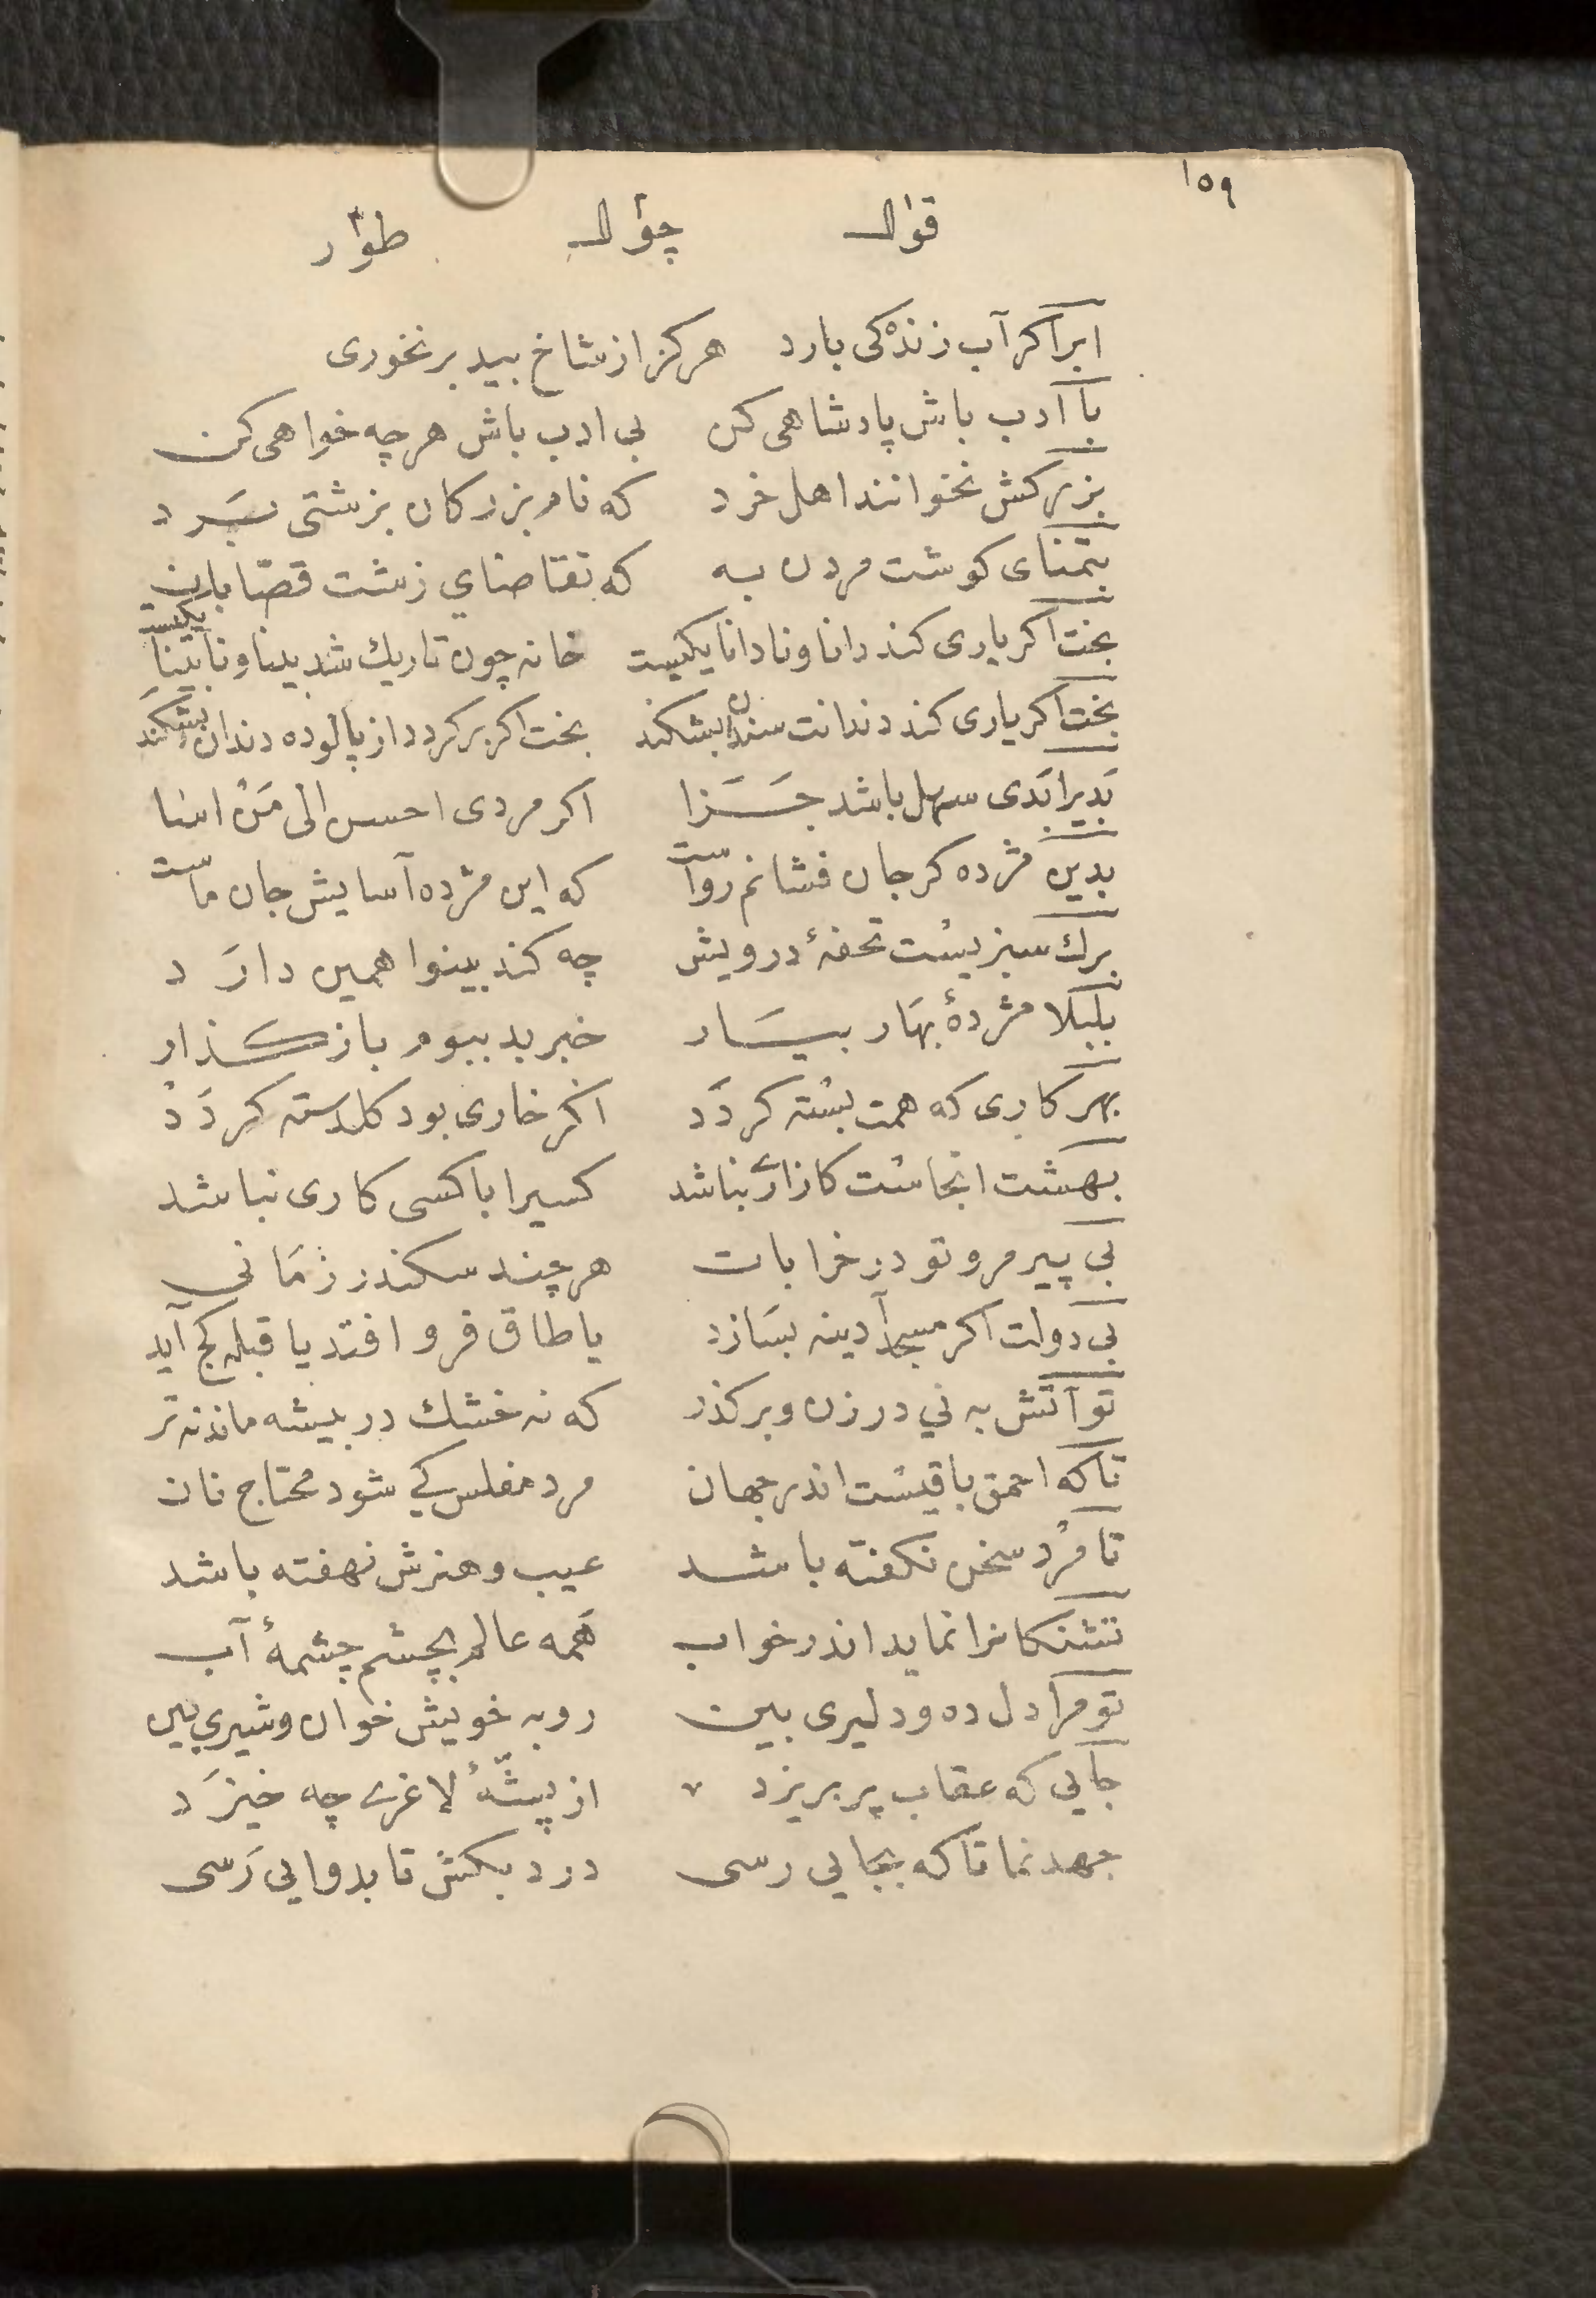 ١٥٩
قوال چؤال طوار
ابر اكر آب زندكی بارد هركز از شاخ بید بر نخوری
با ادب باش پادشاهی كن بی ادب باش هرچه خواهی كن
بزركش نخوانند اهل خرد كه نام بزركان بزشتی بَرد
بتمنای كوشت مردن به كه تقاضاي زشت قصّابان
بخت اكر یاری كند دانا و نادانا یكیست خانه چون تاریك شد بینا و نابینا یكیست
بخت اكر یاری كند دندانت سندان بشكند بخت اكر بر كردد از پالوده دندان بشكند
بَدیرا بَدی سهل باشد جَزَا اكر مردی احسن الی مَنْ اسا
بدین مژده كر جان فشانم رواست كه این مژده آسایش جان ماست
برك سبزیست تحفهٔ درویش چه كند بینوا همین دارَد
بلبلا مژدهٔ بهَار بیَار خبر بد ببوم باز كذار
بهر كاری كه همت بسْته كردَد اكر خاری بود كلدسته كردَدْ
بهشت انجاسْت كازاری نباشد كسیرا باكسی كاری نباشد
بی پیر مرو تو در خرابات هر چند سكندر زمَانی
بی دولت اكر مسجد آدینه بسَازد یا طاق فرو افتد یا قبله كج آید
تو آتش به ني در زن و بر كذر كه نه خشك در بیشه ماند نه تر
تا كه احمق باقیسْت اندر جهان مرد مفلس كي شود محتاج نان
تا مرْد سخن نكفته باشد عیب و هنرش نهفته باشد
تشنكانرا نماید اندر خواب همه عالم بچشم چشمهٔ آب
تو مرا دل ده و دلیری بین روبه خویش خوان و شیری بین
جایی كه عقاب پر بریزد از پشّهٔ لاغری چه خیزَد
جهد نما تا كه بجایی رسی درد بكش تا بدوایی رَسی